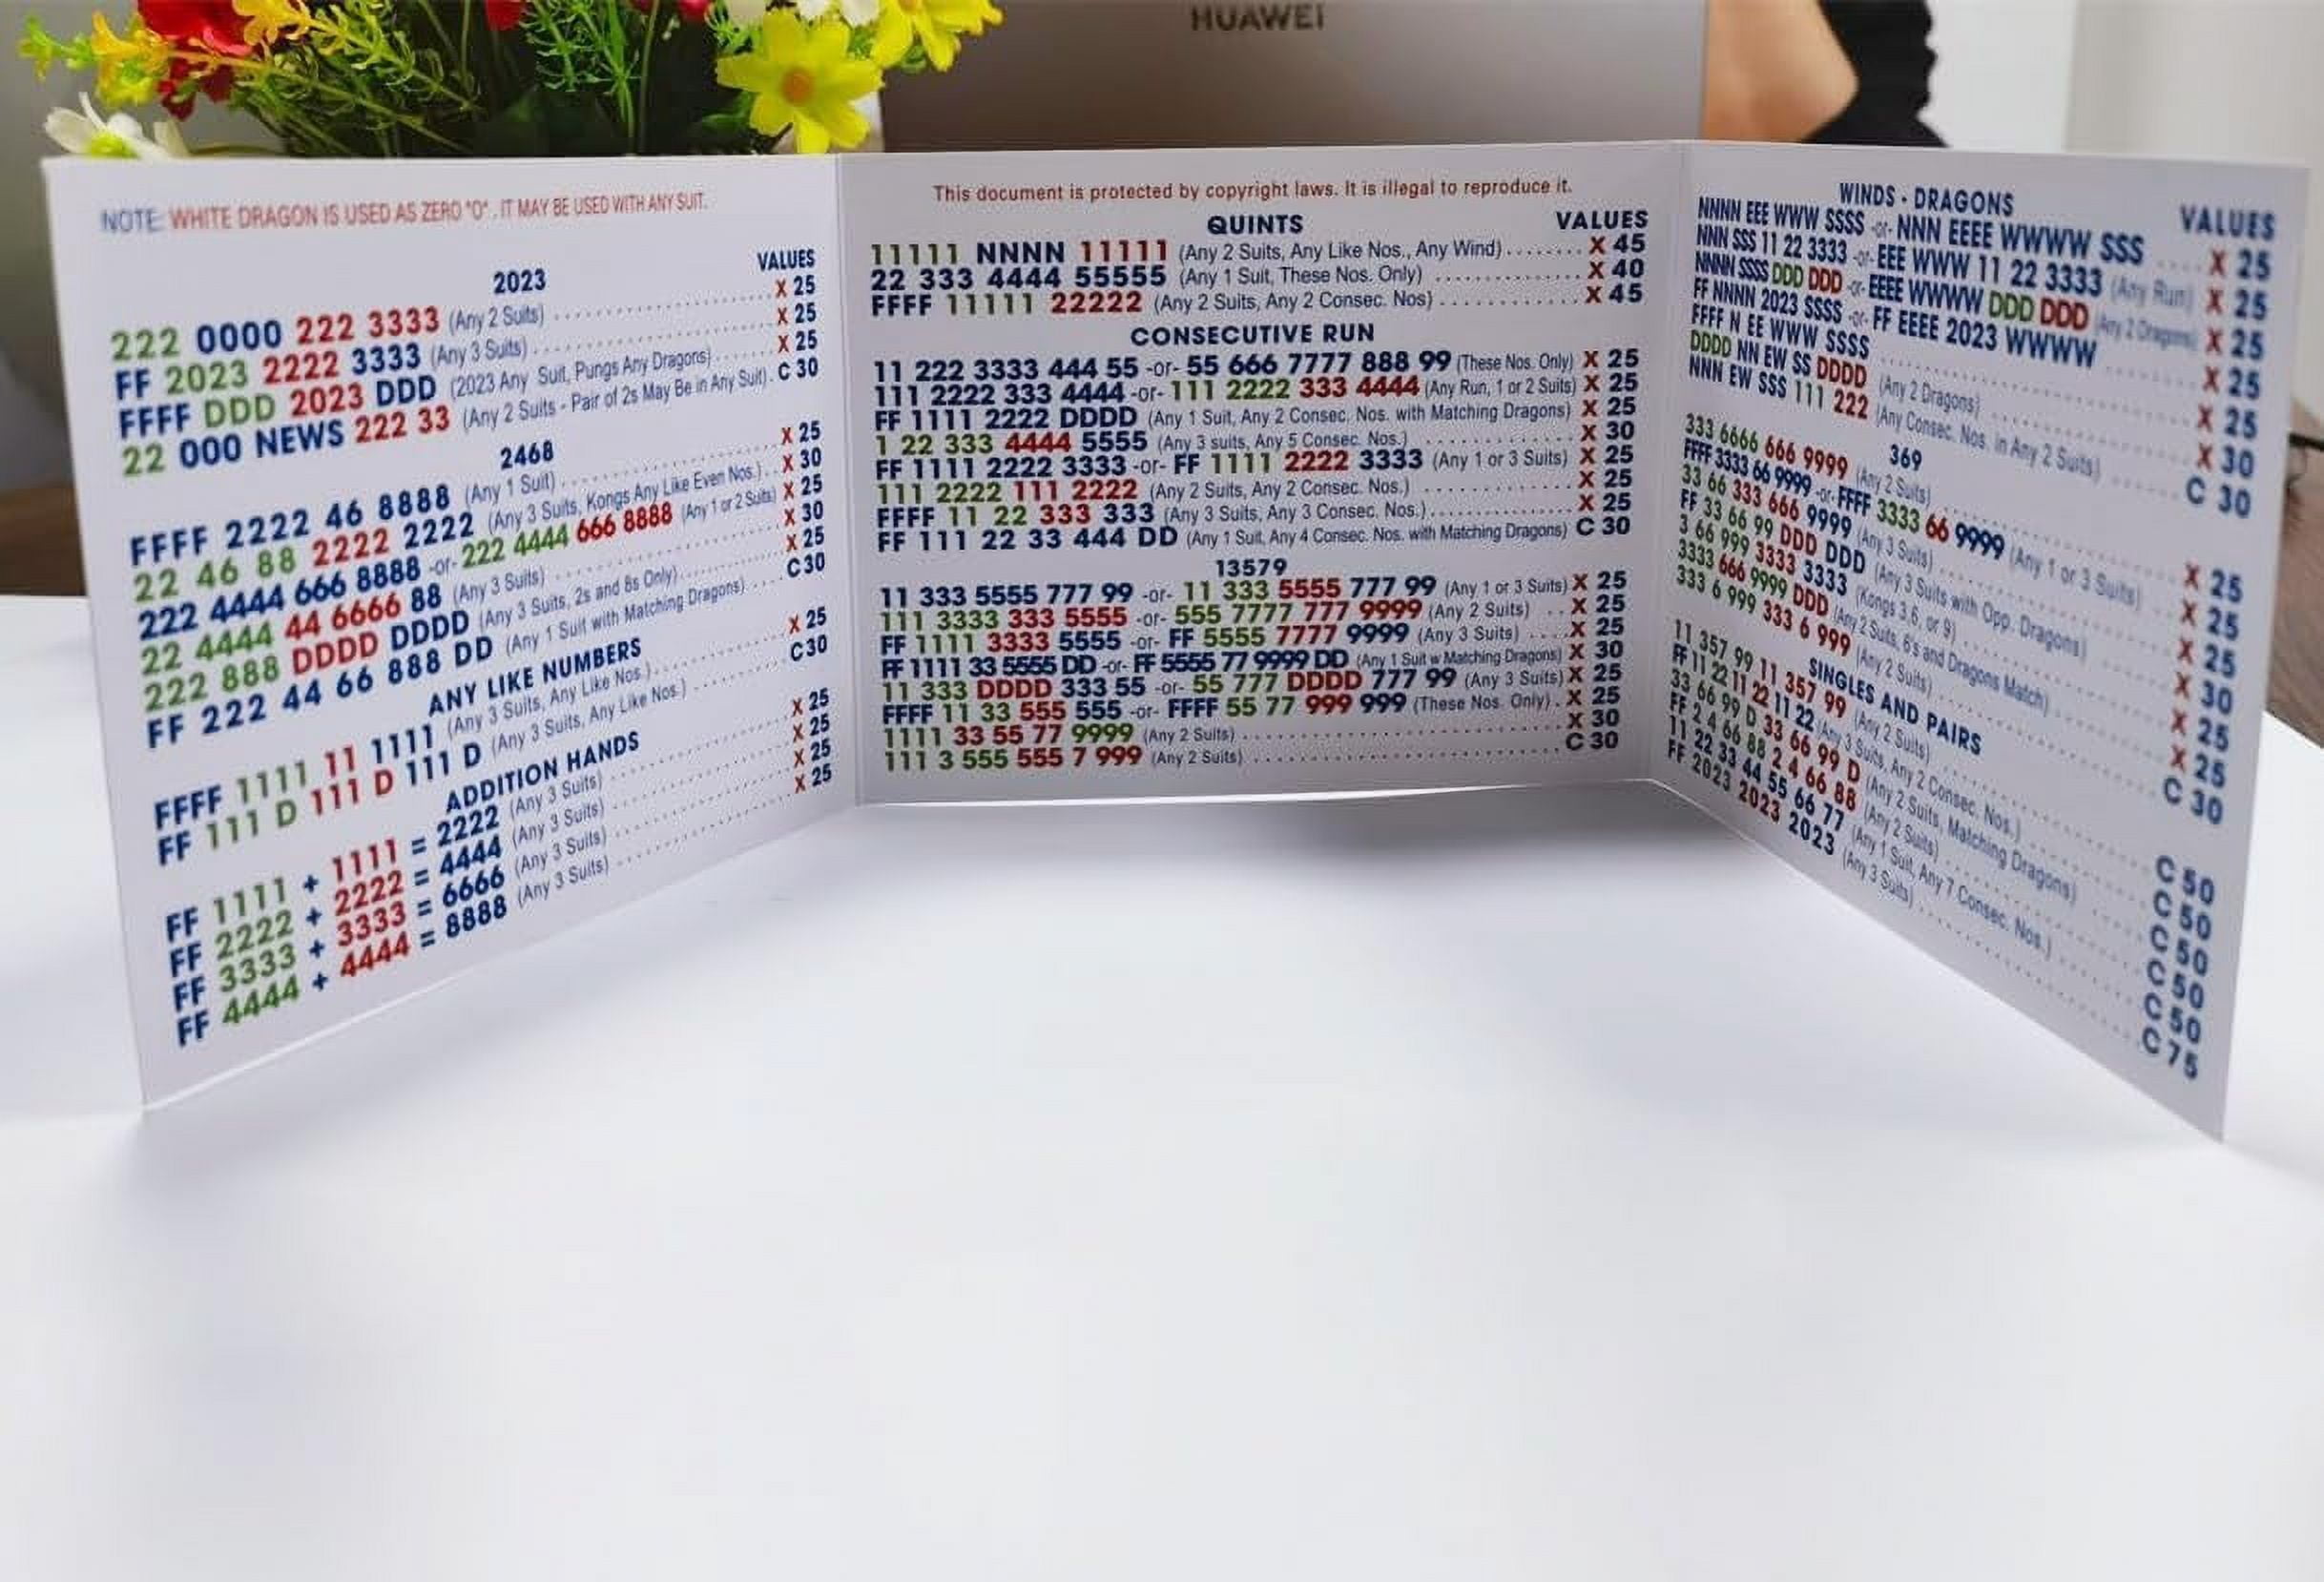 HUAWEI
NOTE: WHITE DRAGON IS USED AS ZERO "0". IT MAY BE USED WITH ANY SUIT.
VALUES
2023
222 0000 222 3333 (Any 2 Suits) X 25
FF 2023 2222 3333 (Any 3 Suits) X 25
FFFF DDD 2023 DDD (2023 Any Suit, Pungs Any Dragons) X 25
22 000 NEWS 222 33 (Any 2 Suits - Pair of 2s May Be in Any Suit) C 30
2468
FFFF 2222 46 8888 (Any 1 Suit) X 25
22 46 88 2222 2222 (Any 3 Suits, Kongs Any Like Even Nos.) X 30
222 4444 666 8888 -or- 222 4444 666 8888 (Any 1 or 2 Suits) X 25
22 4444 44 6666 88 (Any 3 Suits) X 30
222 888 DDDD DDDD (Any 3 Suits, 2s and 8s Only) X 25
FF 222 44 66 888 DD (Any 1 Suit with Matching Dragons) C 30
ANY LIKE NUMBERS
FFFF 1111 11 1111 (Any 3 Suits, Any Like Nos.) X 25
FF 111 D 111 D 111 D (Any 3 Suits, Any Like Nos.) C 30
ADDITION HANDS
FF 1111 + 1111 = 2222 (Any 3 Suits) X 25
FF 2222 + 2222 = 4444 (Any 3 Suits) X 25
FF 3333 + 3333 = 6666 (Any 3 Suits) X 25
FF 4444 + 4444 = 8888 (Any 3 Suits) X 25
This document is protected by copyright laws. It is illegal to reproduce it.
QUINTS VALUES
11111 NNNN 11111 (Any 2 Suits, Any Like Nos., Any Wind) X 45
22 333 4444 55555 (Any 1 Suit, These Nos. Only) X 40
FFFF 11111 22222 (Any 2 Suits, Any 2 Consec. Nos) X 45
CONSECUTIVE RUN
11 222 3333 444 55 -or- 55 666 7777 888 99 (These Nos. Only) X 25
111 2222 333 4444 -or- 111 2222 333 4444 (Any Run, 1 or 2 Suits) X 25
FF 1111 2222 DDDD (Any 1 Suit, Any 2 Consec. Nos. with Matching Dragons) X 25
1 22 333 4444 5555 (Any 3 suits, Any 5 Consec. Nos.) X 30
FF 1111 2222 3333 -or- FF 1111 2222 3333 (Any 1 or 3 Suits) X 25
111 2222 111 2222 (Any 2 Suits, Any 2 Consec. Nos.) X 25
FFFF 11 22 333 333 (Any 3 Suits, Any 3 Consec. Nos.) X 25
FF 111 22 33 444 DD (Any 1 Suit, Any 4 Consec. Nos. with Matching Dragons) C 30
13579
11 333 5555 777 99 -or- 11 333 5555 777 99 (Any 1 or 3 Suits) X 25
111 3333 333 5555 -or- 555 7777 777 9999 (Any 2 Suits) X 25
FF 1111 3333 5555 -or- FF 5555 7777 9999 (Any 3 Suits) X 25
FF 1111 33 5555 DD -or- FF 5555 77 9999 DD (Any 1 Suit w Matching Dragons) X 30
11 333 DDDD 333 55 -or- 55 777 DDDD 777 99 (Any 3 Suits) X 25
FFFF 11 33 555 555 -or- FFFF 55 77 999 999 (These Nos. Only) X 25
1111 33 55 77 9999 (Any 2 Suits) X 30
111 3 555 555 7 999 (Any 2 Suits) C 30
WINDS - DRAGONS VALUES
NNNN EEE WWW SSSS -or- NNN EEEE WWWW SSS X 25
NNN SSS 11 22 3333 -or- EEE WWW 11 22 3333 (Any Run) X 25
NNNN SSSS DDD DDD -or- EEEE WWWW DDD DDD (Any 2 Dragons) X 25
FF NNNN 2023 SSSS -or- FF EEEE 2023 WWWW X 25
FFFF N EE WWW SSSS X 25
DDDD NN EW SS DDDD (Any 2 Dragons) X 30
NNN EW SSS 111 222 (Any Consec. Nos. in Any 2 Suits) C 30
369
333 6666 666 9999 (Any 2 Suits) X 25
FFFF 3333 66 9999 -or- FFFF 3333 66 9999 (Any 1 or 3 Suits) X 25
33 66 333 666 9999 (Any 3 Suits) X 25
FF 33 66 99 DDD DDD (Any 3 Suits with Opp. Dragons) X 30
3 66 999 3333 3333 (Kongs 3,6, or 9) X 25
3333 666 9999 DDD (Any 2 Suits, 6's and Dragons Match) X 25
333 6 999 333 6 999 (Any 2 Suits) C 30
SINGLES AND PAIRS
11 357 99 11 357 99 (Any 2 Suits) C 50
FF 11 22 11 22 11 22 (Any 3 Suits, Any 2 Consec. Nos.) C 50
33 66 99 D 33 66 99 D (Any 2 Suits, Matching Dragons) C 50
FF 2 4 66 88 2 4 66 88 (Any 2 Suits) C 50
11 22 33 44 55 66 77 (Any 1 Suit, Any 7 Consec. Nos.) C 50
FF 2023 2023 2023 (Any 3 Suits) C 75